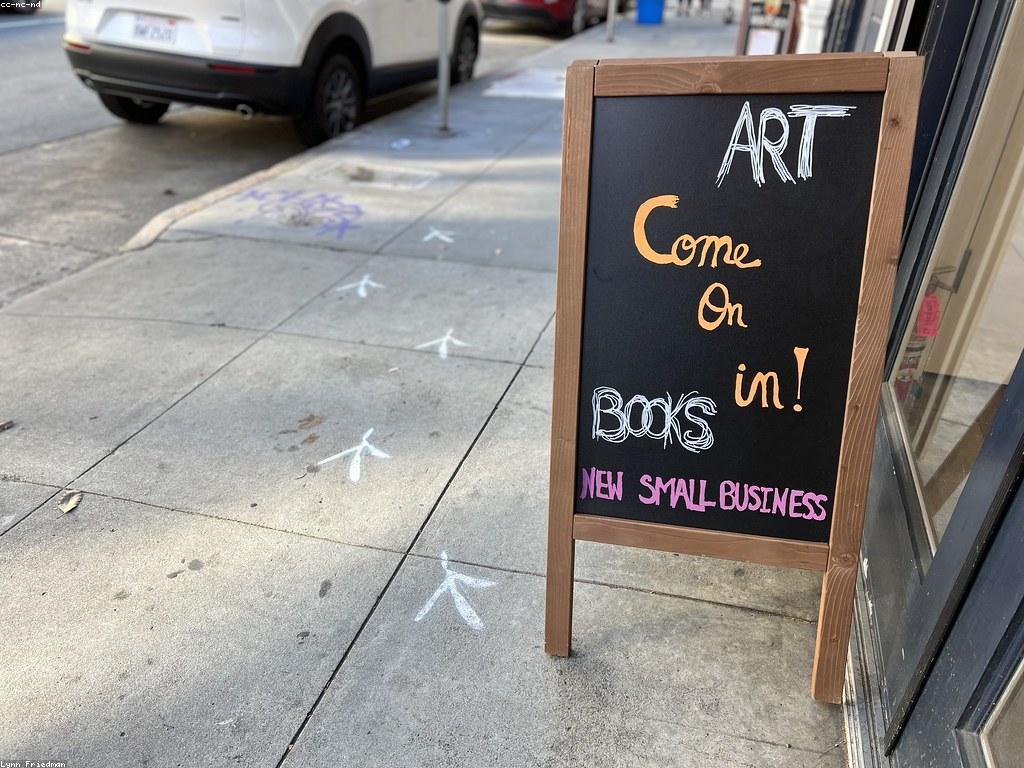 cc-nc-nd
ART
Come
On
in!
BOOKS
NEW SMALL BUSINESS
Lynn Friedman